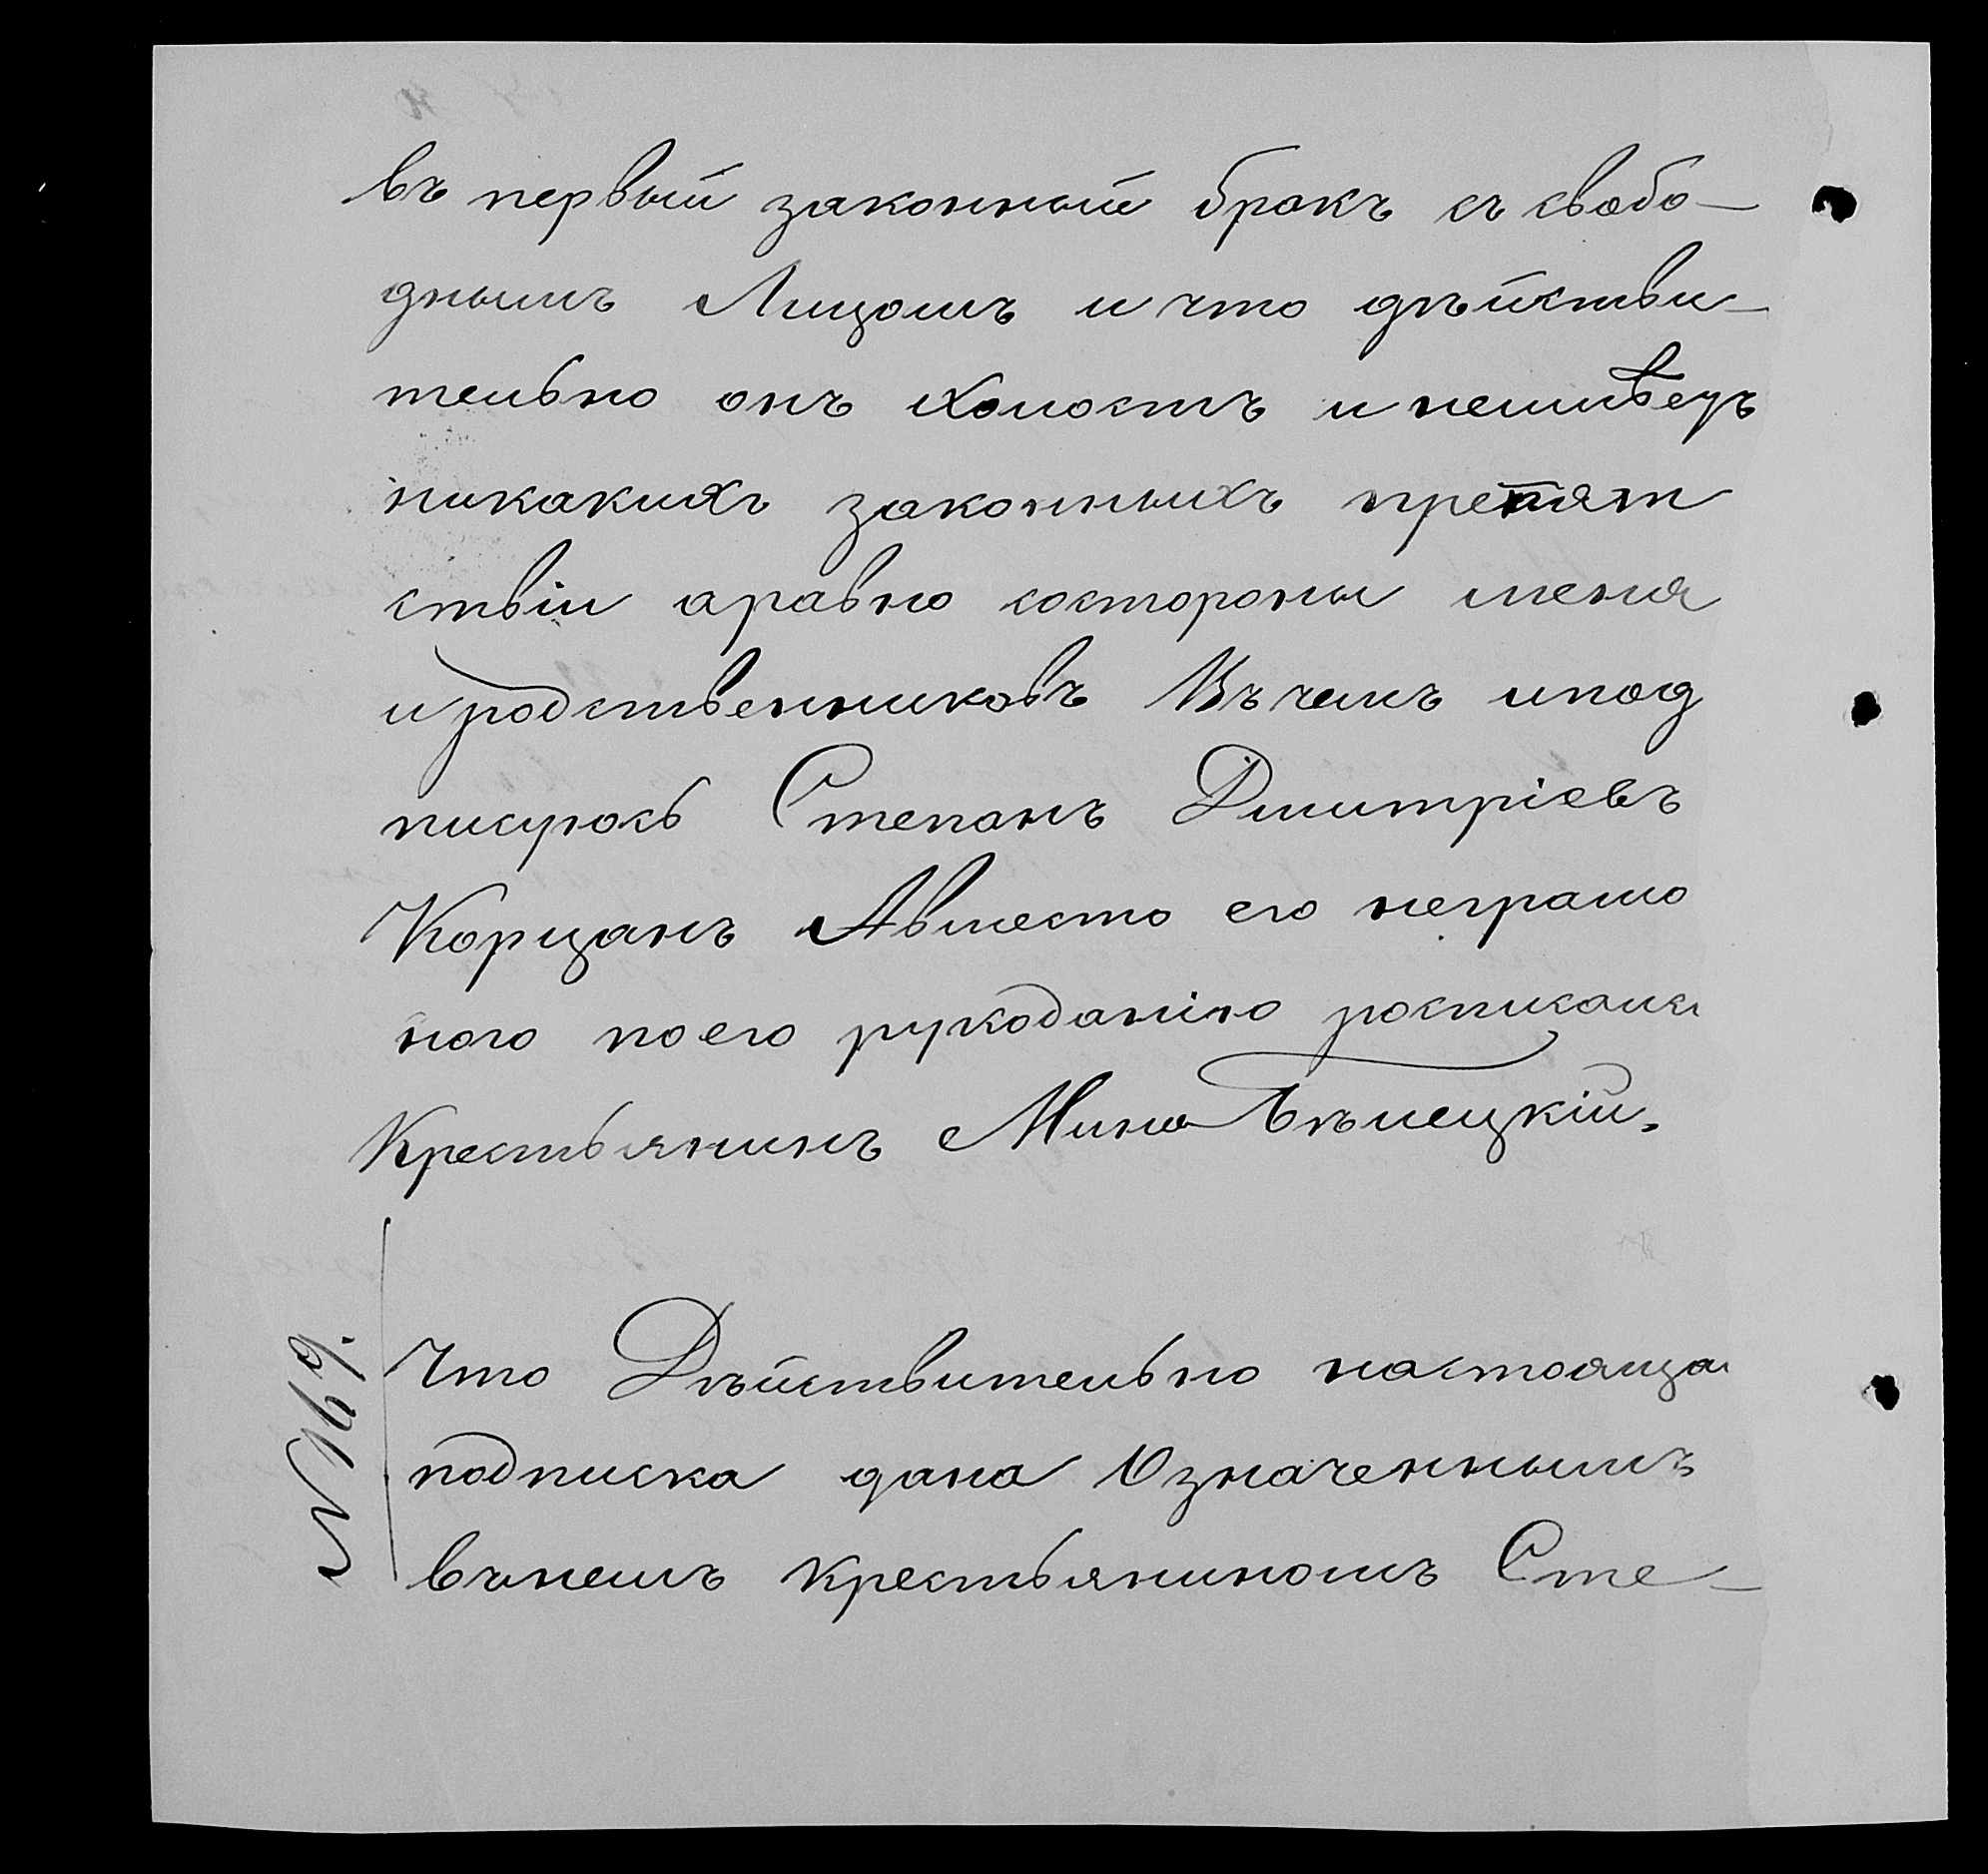 въ первый законный бракъ съ свобо-
днымъ Лицомъ и что дѣйстви-
тельно онъ Холостъ и неимѣетъ
никакихъ законныхъ препят
ствіи аравно состороны меня
и родственниковъ Въ чемъ ипод
писуюсь Степанъ Дмитріевъ
Корцанъ Авместо его неграмо
ного по его рукоданію росписался
Крестьянинъ Мина Бѣлецкій.
№ 169.
Что Дѣйствительно настоящая
подписка дана Означеннымъ
вънемъ крестьяниномъ Сте-